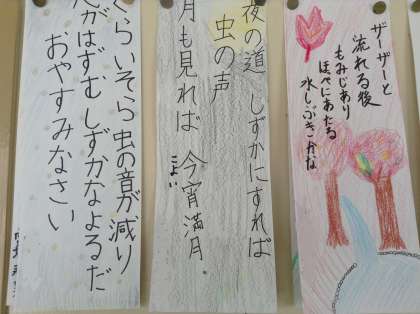 ザーザーと
流れる後
もみじあり
ほぺにあたる
水しぶきかな
夜の道 しずかにすれば
虫の声
月も見れば 今宵満月。
こよい
くらいそら 虫の音が減り
がはずむ しずかなよるだ
おやすみなさい